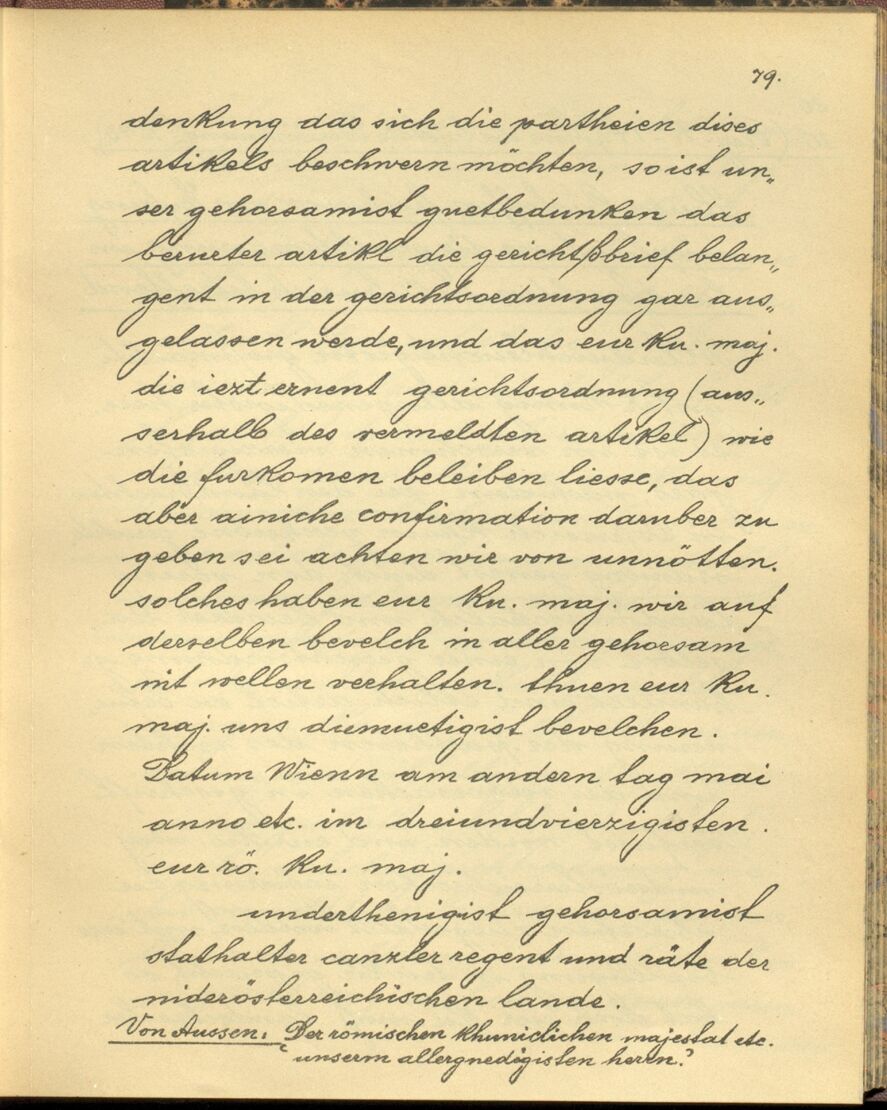 79.
denkung das sich die partheien dises
artikels beschwern möchten, so ist un„
ser gehorsamist guetbedunken das
berurter artikl die gerichtßbrief belan„
gent in der gerichtsordnung gar aus„
gelassen werde, und das eur ku. maj.
die iezt ernent gerichtsordnung (aus„
serhalb des vermeldten artikel) wie
die furkomen beleiben liesse, das
aber ainiche confirmation daruber zu
geben sei achten wir von unnötten.
solches haben eur ku. maj. wir auf
derselben bevelch in aller gehorsam
nit wellen verhalten. thuen eur ku.
maj. uns diemuetigist bevelchen.
Datum Wienn am andern tag mai
anno etc. im dreiundvierzigisten.
eur rö. ku. maj.
underthenigist gehorsamist
stathalter canzler regent und räte der
niderösterreichischen lande.
Von Aussen: Der römischen khuniclichen majestat etc.
unserm allergnedigisten herrn.?